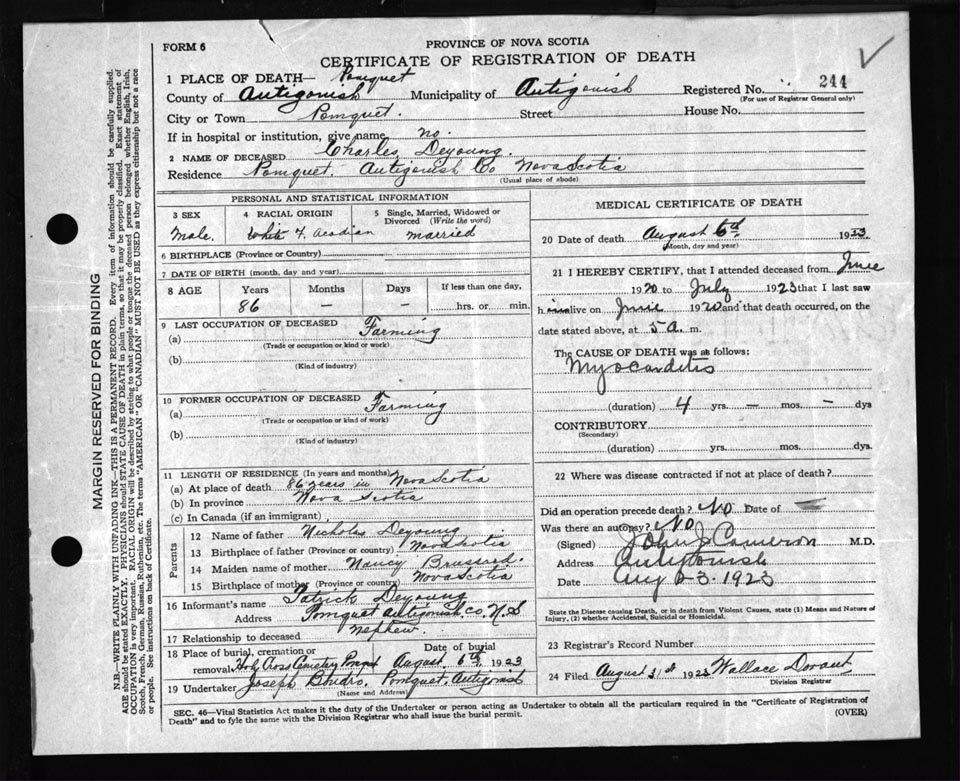 FORM 6
PROVINCE OF NOVA SCOTIA
CERTIFICATE OF REGISTRATION OF DEATH
244
1 PLACE OF DEATH— Pomquet
County of Antigonish Municipality of Antigonish Registered No.
(For use of Registrar General only)
City or Town Pomquet. Street House No.
If in hospital or institution, give name no.
2 NAME OF DECEASED Charles Deyoung.
Residence Pomquet. Antigonish Co Nova Scotia
(Usual place of abode)
PERSONAL AND STATISTICAL INFORMATION
3 SEX 4 RACIAL ORIGIN 5 Single, Married, Widowed or Divorced (Write the word)
Male. White F. Acadian married
6 BIRTHPLACE (Province or Country)
7 DATE OF BIRTH (month, day and year)
8 AGE Years Months Days If less than one day,
86 — — hrs. or min.
9 LAST OCCUPATION OF DECEASED
(a) Farming
(Trade or occupation or kind or work)
(b)
(Kind of industry)
10 FORMER OCCUPATION OF DECEASED
(a) Farming
(Trade or occupation or kind of work)
(b)
(Kind of industry)
11 LENGTH OF RESIDENCE (In years and months)
(a) At place of death 86 years in Nova Scotia
(b) In province Nova Scotia
(c) In Canada (if an immigrant)
Parents
12 Name of father Nicholas Deyoung
13 Birthplace of father (Province or country) Nova Scotia
14 Maiden name of mother Nancy
15 Birthplace of mother (Province or country) Nova Scotia
16 Informant's name Patrick Deyoung
Address Pomquet Antigonish Co. N.S
17 Relationship to deceased nephew.
18 Place of burial, cremation or removal Holy Cross Cemetery Date of burial August 6th, 1923
19 Undertaker Joseph Pomquet, Antigonish
(Name and Address)
MEDICAL CERTIFICATE OF DEATH
20 Date of death August 6th 1923.
(Month, day and year)
21 I HEREBY CERTIFY, that I attended deceased from June
1920 to July 1923 that I last saw
h alive on June 1920 and that death occurred, on the
date stated above, at 5 a. m.
The CAUSE OF DEATH was as follows:
Myocarditis
(duration) 4 yrs. — mos. — dys
CONTRIBUTORY
(Secondary)
(duration) yrs. mos. dys.
22 Where was disease contracted if not at place of death?
Did an operation precede death? No Date of
Was there an autopsy? No
(Signed) John J Cameron M.D.
Address Antigonish
Date Aug 1923
State the Disease causing Death, or in death from Violent Causes, state (1) Means and Nature of
Injury, (2) whether Accidental, Suicidal or Homicidal.
23 Registrar's Record Number
24 Filed August 31st 1923 Wallace
Division Registrar
SEC. 46—Vital Statistics Act makes it the duty of the Undertaker or person acting as Undertaker to obtain all the particulars required in the "Certificate of Registration of
Death" and to fyle the same with the Division Registrar who shall issue the burial permit.
(OVER)
MARGIN RESERVED FOR BINDING
N.B.—WRITE PLAINLY WITH UNFADING INK—THIS IS A PERMANENT RECORD. Every item of information should be carefully supplied.
AGE should be stated EXACTLY. PHYSICIANS should STATE CAUSE OF DEATH in plain terms, so that it may be properly classified. Exact statement of
OCCUPATION is very important. RACIAL ORIGIN will be described by stating to what people or tongue the deceased person belonged whether English, Irish,
Scotch, French, German, Russian, Ruthenian, etc. The terms "AMERICAN" OR "CANADIAN" MUST NOT BE USED as they express citizenship but not a race
or people. See instructions on back of Certificate.